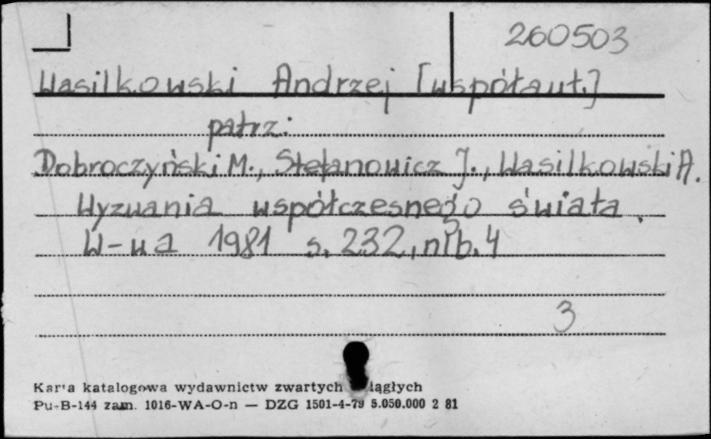 260503
Wasilkowski Andrzej [współaut.]
patrz:
Dobroczyński M., Stefanowicz J., Wasilkowski A.
Wyzwania współczesnego świata.
W-wa 1981 s. 232, nlb. 4
3
Karta katalogowa wydawnictw zwartych iągłych
Pu-B-144 zam. 1016-WA-O-n — DZG 1501-4-79 5.050.000 2 81